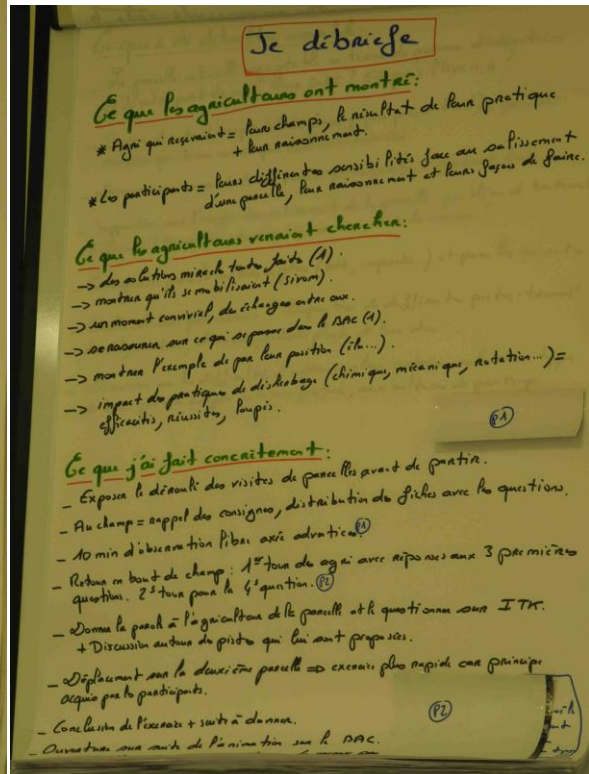 Je débriefe
Ce que les agriculteurs ont montré:
* Agri qui recevaient = leurs champs, le résultat de leur pratique
+ leur raisonnement.
* Les participants = leurs différentes sensibilités face au salissement
d'une parcelle, leur raisonnement et leurs façons de faire.
Ce que les agriculteurs venaient chercher:
-> des solutions miracle toutes faites (1).
-> montrer qu'ils se mobilisaient (sivom).
-> un moment convivial, des échanges entre eux.
-> se rassurer sur ce qui se passe dans le BAC (1).
-> montrer l'exemple de par leur position (élu...).
-> impact des pratiques de désherbage (chimique, mécanique, rotation...) =
efficacités, réussites, loupés.
P1
Ce que j'ai fait concrètement:
- Exposer le déroulé des visites de parcelles avant de partir.
- Au champ = rappel des consignes, distribution des fiches avec les questions.
- 10 min d'observation libre axée adventices P1
- Retour en bout de champ: 1er tour des agri avec réponses aux 3 premières
question. 2è tour pour la 4è question. P2
- Donner la parole à l'agriculteur de la parcelle et le questionner sur ITK.
+ Discussion autour de pistes qui lui sont proposées.
- Déplacement sur la deuxième parcelle => exercice plus rapide car principe
acquis par les participants.
- Conclusion de l'exercice + suite à donner.
P2
- Ouverture sur suite de l'animation sur le BAC.